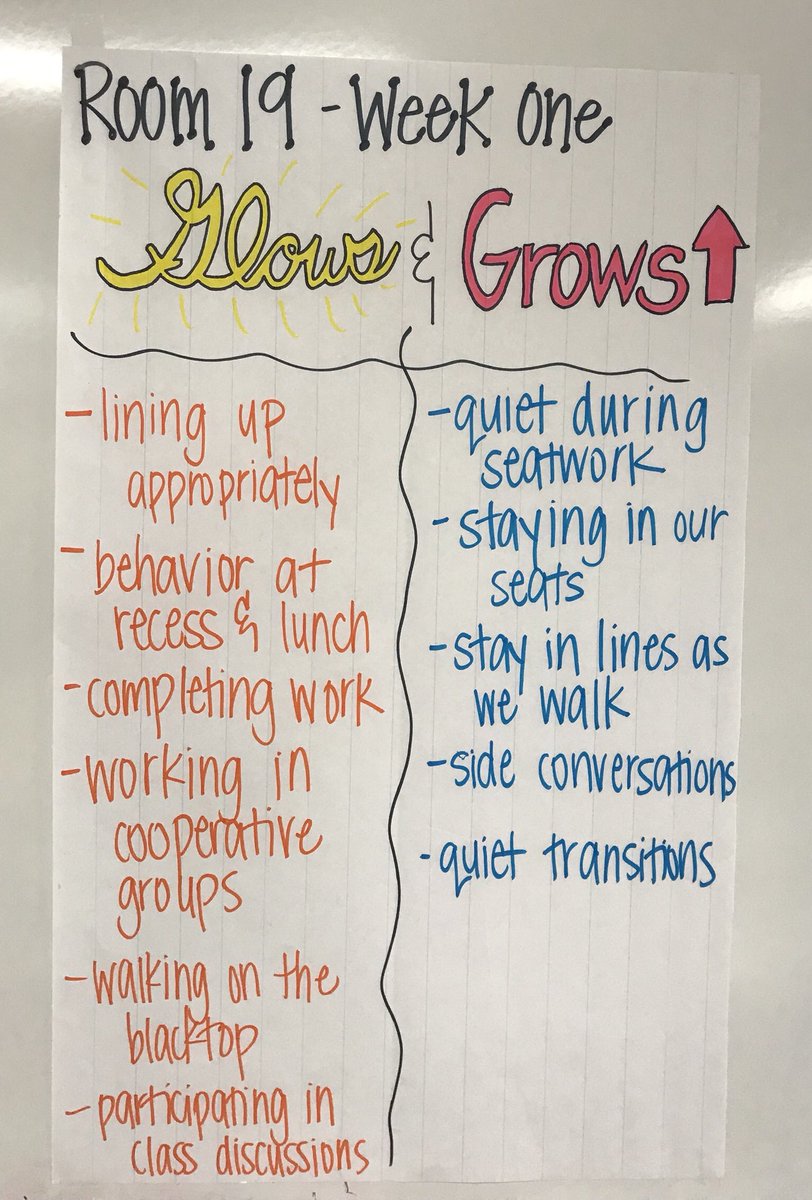 Room 19 - Week One
Glows & Grows
- lining up
appropriately
- behavior at
recess & lunch
- completing work
- working in
cooperative
groups
- walking on the
blacktop
- participating in
class discussions
- quiet during
seatwork
- staying in our
seats
- stay in lines as
we walk
- side conversations
- quiet transitions